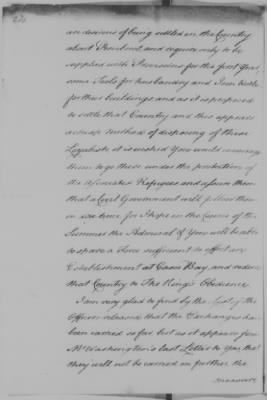 are desirous of being settled in the Country
about Penobscot and require only to be
supplied with Provisions for the first Year,
some Tools for husbandry and Iron Work
for their buildings and as it is proposed
to settle that Country and this appears
a cheap method of disposing of these
Loyalists it is wished You would encourage
them to go there under the protection of
the Associated Refugees and assure them
that a Civil Government will follow them
in due time for I hope in the Course of the
Summer the Admiral & You will be able
to spare a Force sufficient to effect any
Establishment at Casco Bay, and reduce
that Country to The King's Obedience.
I am very glad to find by the List of the
Officers released that the Exchanges has
been carried so far but as it appears from
Mr Washington's last Letter to You, that
they will not be carried on further, the
measures